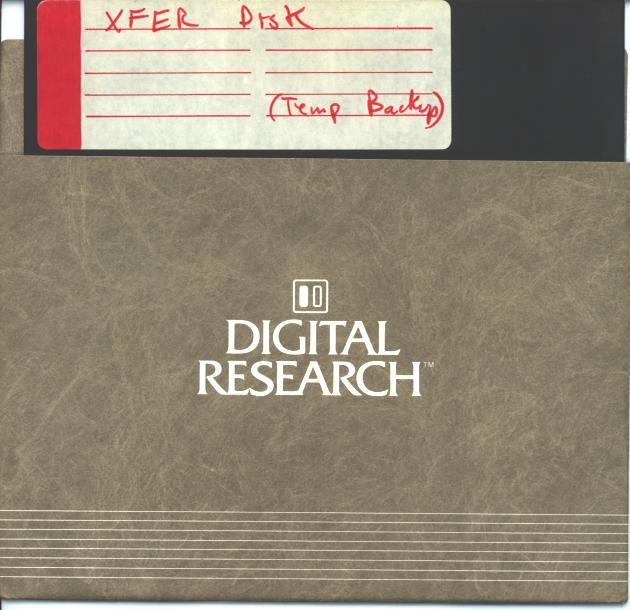 XFER Disk
(Temp Backup)
DIGITAL
RESEARCH™